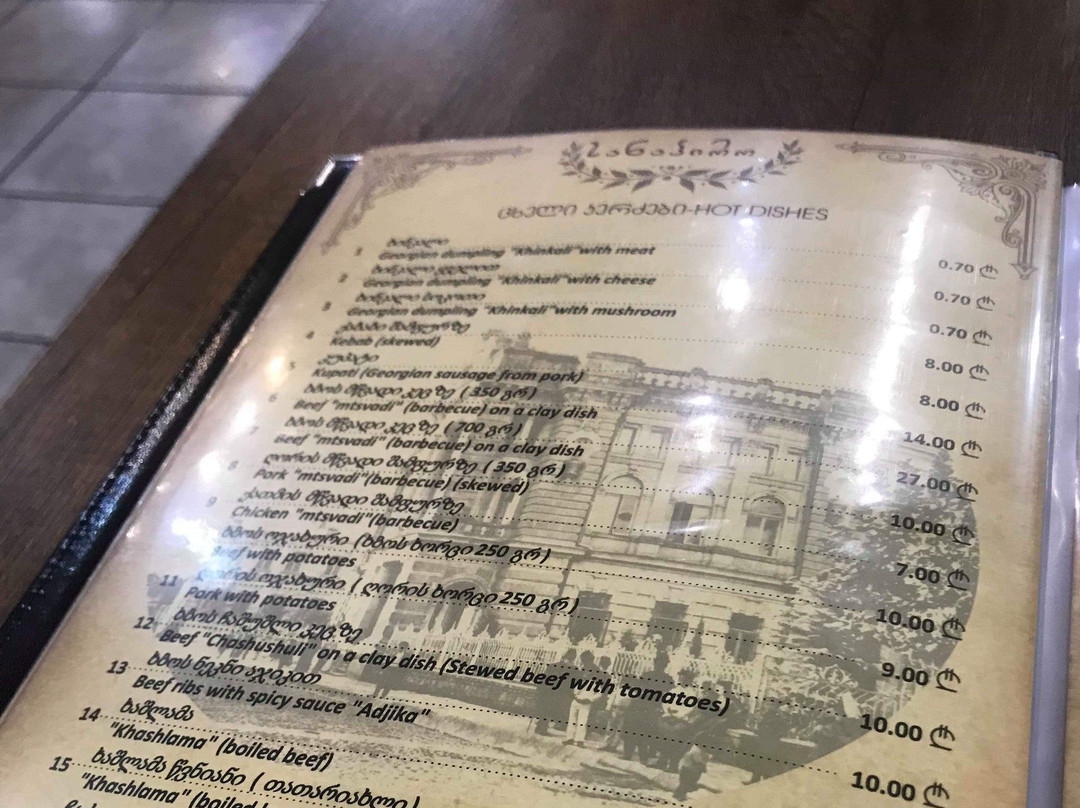 სანაპირო
ცხელი კერძები-HOT DISHES
1 ხინკალი
Georgian dumpling "Khinkali"with meat 0.70 ₾
2 ხინკალი ყველით
Georgian dumpling "Khinkali"with cheese 0.70 ₾
3 ხინკალი სოკოთი
Georgian dumpling "Khinkali"with mushroom 0.70 ₾
4 ქაბაბი შამფურზე
Kebab (skewed) 8.00 ₾
5 კუპატი
Kupati (Georgian sausage from pork) 8.00 ₾
6 ხბოს მწვადი კეცზე ( 350 გრ)
Beef "mtsvadi" (barbecue) on a clay dish 14.00 ₾
7 ხბოს მწვადი კეცზე ( 700 გრ)
Beef "mtsvadi" (barbecue) on a clay dish 27.00 ₾
8 ღორის მწვადი შამფურზე ( 350 გრ)
Pork "mtsvadi"(barbecue) (skewed) 10.00 ₾
9 ქათმის მწვადი შამფურზე
Chicken "mtsvadi"(barbecue) 7.00 ₾
ხბოს ოჯახური (ხბოს ხორცი 250 გრ)
Beef with potatoes 10.00 ₾
11 ღორის ოჯახური ( ღორის ხორცი 250 გრ)
Pork with potatoes 9.00 ₾
12 ხბოს ჩაშუშული კეცზე
Beef "Chashushuli" on a clay dish (Stewed beef with tomatoes) 10.00 ₾
13 ხბოს ნეკნი აჯიკით
Beef ribs with spicy sauce "Adjika" 10.00 ₾
14 ხაშლამა
"Khashlama" (boiled beef)
15 ხაშლამა წვნიანი ( თათარიახლი)
"Khashlama" (boiled